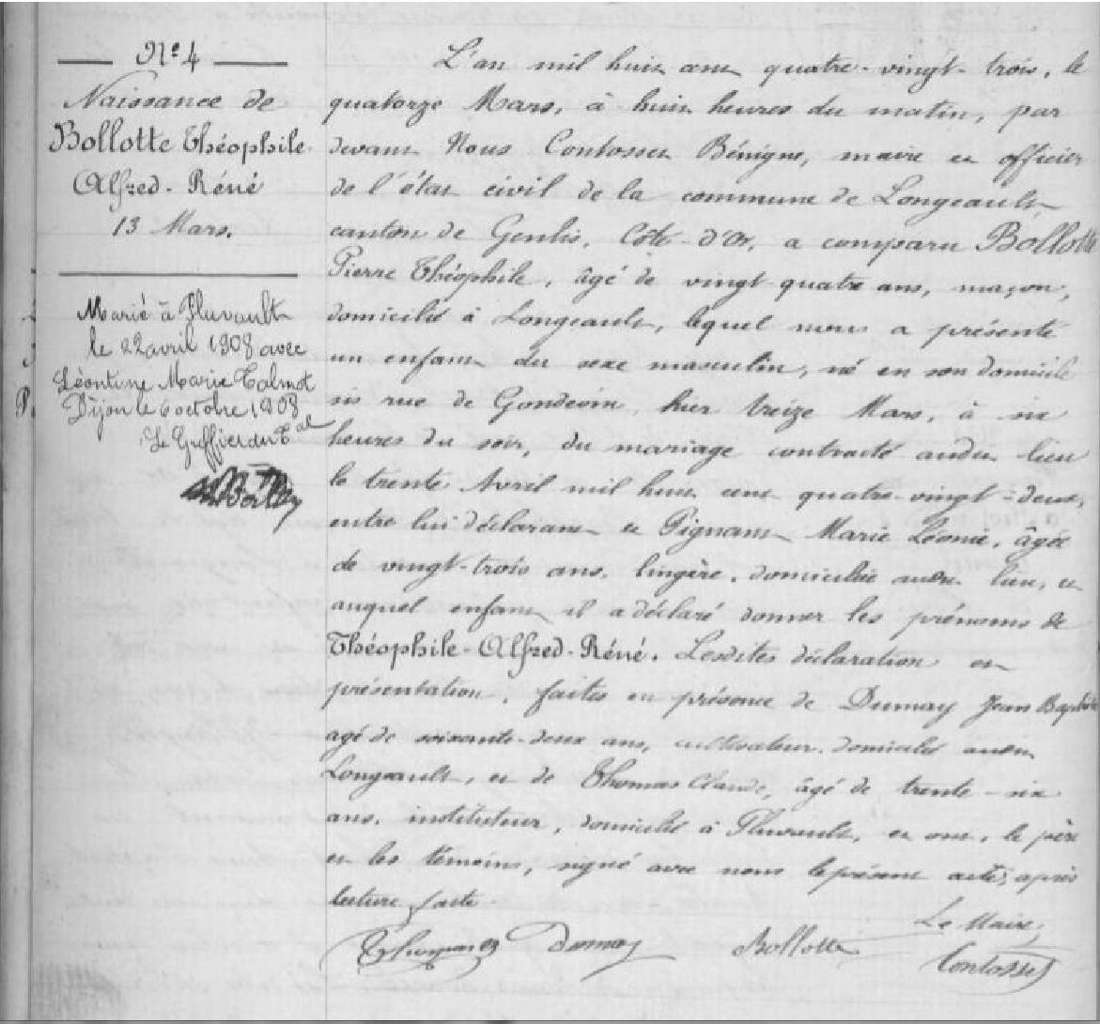 N° 4
Naissance de
Bollotte Théophile
Alfred-Réné
13 Mars.
Marié à Pluvault
le 22 avril 1908 avec
Léontine Marie Talmot
Dijon le 6 octobre 1908
Le Greffier du Tal
L'an mil huit cent quatre-vingt-trois, le
quatorze Mars, à huit heures du matin, par
devant Nous Contosset Bénigne, maire et officier
de l'état civil de la commune de Longeault,
canton de Genlis, Côte-d'Or, a comparu Bollotte
Pierre Théophile, âgé de vingt-quatre ans, maçon,
domicilié à Longeault, lequel nous a présenté
un enfant du sexe masculin, né en son domicile
sis rue de hier treize Mars, à six
heures du soir, du mariage contracté audit lieu
le trente Avril mil huit cent quatre-vingt-deux,
entre lui déclarant et Pignant Marie Léonie, âgée
de vingt-trois ans, lingère, domiciliée audit lieu, et
auquel enfant il a déclaré donner les prénoms de
Théophile-Alfred-Réné. Lesdites déclaration et
présentation, faites en présence de Dumay Jean Baptiste
agé de soixante-deux ans, cultivateur, domicilié audit
Longeault, et de Thomas Claude, âgé de trente-six
ans, instituteur, domicilié à Pluvault, et ont, le père
et les témoins, signé avec nous le présent acte, après
lecture faite
Le Maire,
Thomas Dumay Bollotte Contosset